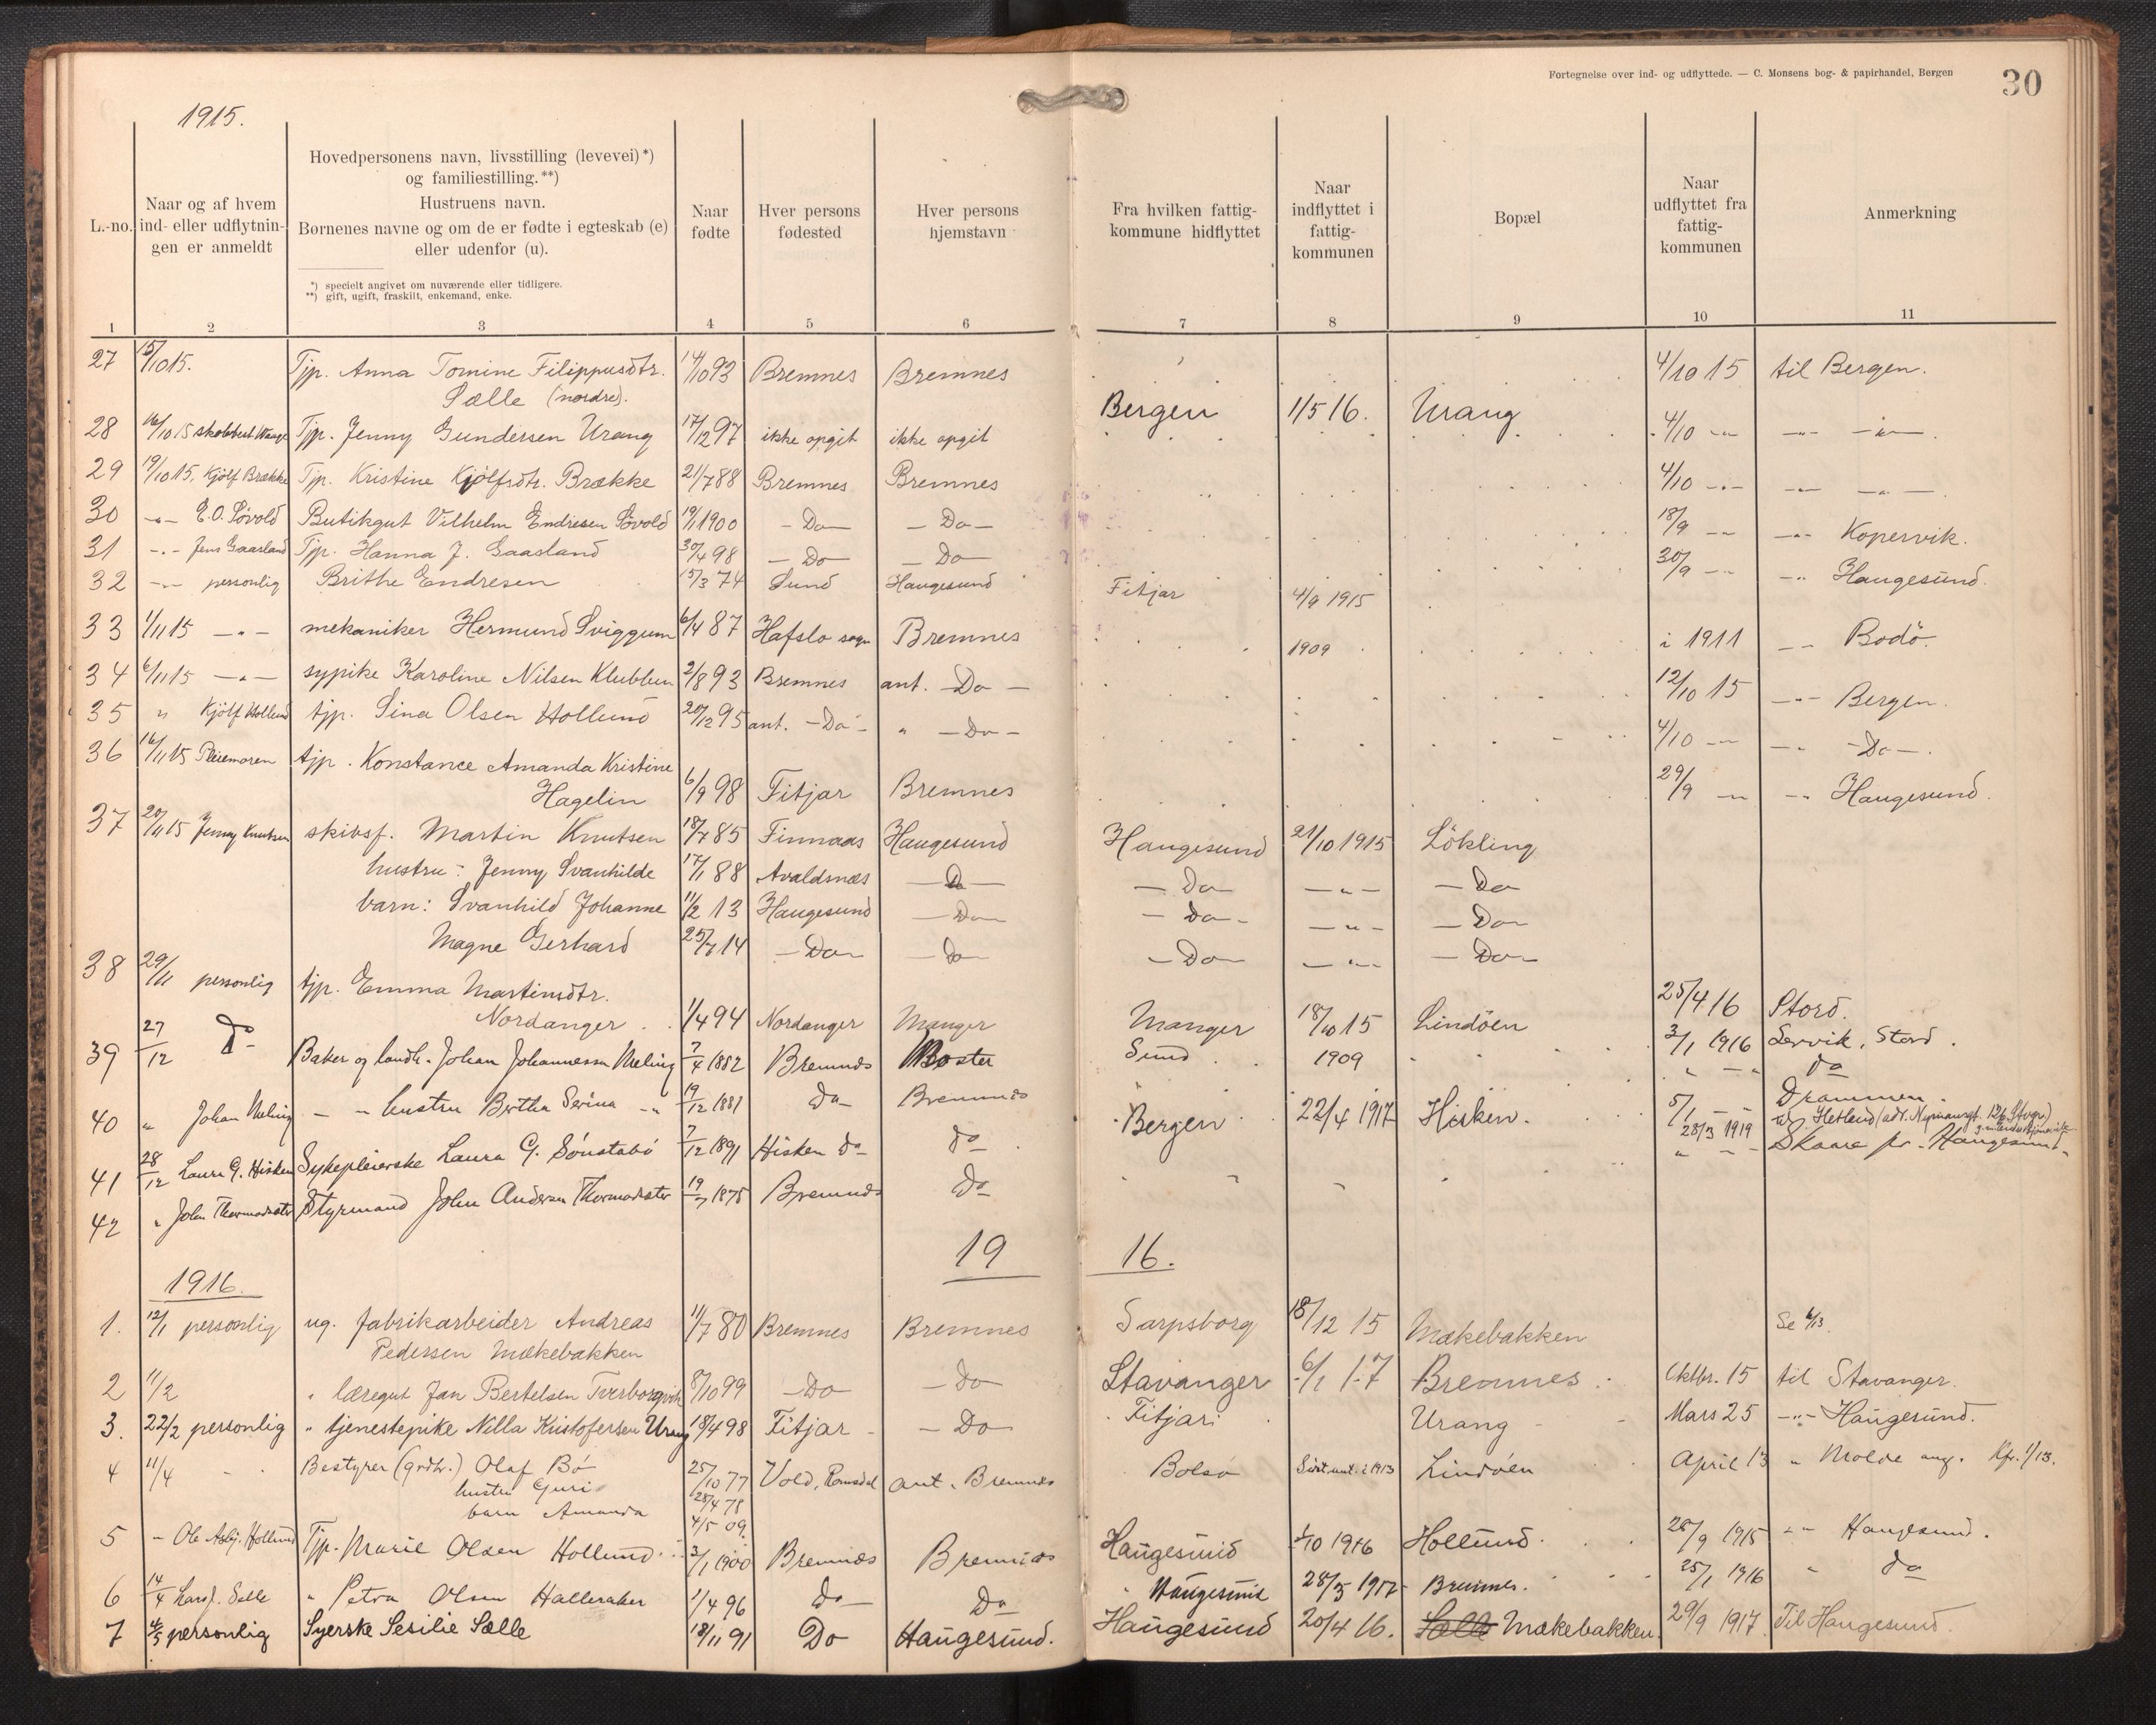 Fortegnelse over ind- og udflyttede. — C. Monsens bog- & papirhandel, Bergen
30
1915.
L.-no.
Naar og af hvem ind- eller udflytningen er anmeldt
Hovedpersonens navn, livsstilling (levevei) *)
og familiestilling. **)
Hustruens navn.
Børnenes navne og om de er fødte i egteskab (e)
eller udenfor (u).
*) specielt angivet om nuværende eller tidligere.
**) gift, ugift, fraskilt, enkemand, enke.
Naar fødte
Hver persons fødested
Hver persons hjemstavn
Fra hvilken fattigkommune hidflyttet
Naar indflyttet i fattigkommunen
Bopæl
Naar udflyttet fra fattigkommunen
Anmerkning
1 2 3 4 5 6 7 8 9 10 11
27 15/10 15. Tjp. Anna Tomine Filippusdtr. 14/10 93 Bremnes Bremnes 4/10 15 til Bergen.
Sælle (nordre).
28 16/10 15 Tjp. Jenny Gundersen Urang 17/12 97 ikke opgit ikke opgit Bergen 1/5 16. Urang 4/10 -"- -"- -"-
29 19/10 15. Kjølf Brække Tjp. Kristine Kjølfsdtr. Brække 21/7 88 Bremnes Bremnes 4/10 -"- -"- -"-
30 -"- E.O. Søvold Butikgut Vilhelm Endresen Søvold 19/1 1900 - Do - - Do - 18/9 -"- -"- Kopervik.
31 -"- Jens Gaasland Tjp. Hanna J. Gaasland 30/4 98 - Do - Do 30/9 -"- -"- Haugesund.
32 -"- personlig Brithe Endresen 15/3 74 Sund Haugesund Fitjar 4/9 1915
33 1/11 15 -"- mekaniker Hermund Sviggum 6/4 87 Hafslo sogn Bremnes 1909 i 1911 -"- Bodø.
34 6/11 15 -"- sypike Karoline Nilsen Klubben 2/8 93 Bremnes ant. - Do - 12/10 15 -"- Bergen.
35 " Kjølf Hollund tjp. Sina Olsen Hollund 20/12 95 ant. - Do - " - Do - 4/10 -"- -"- - Do -.
36 16/11 15 tjp. Konstance Amanda Kristine
Hagelin 6/9 98 Fitjar Bremnes 29/9 -"- -"- Haugesund.
37 20/11 15 Jenny Knutsen skibsf. Martin Knutsen 18/7 85 Finnaas Haugesund Haugesund 21/10 1915 Løkling
hustru: Jenny Svanhilde 17/1 88 Avaldsnæs - Do - - Do - -"- - Do -
barn: Svanhild Johanne 11/2 13 Haugesund - Do - - Do - -"- - Do -
Magne Gerhard 14 - Do - - Do - - Do - -"- - Do -
38 29/11 personlig tjp. Emma Martinsdtr.
Nordanger 1/4 94 Nordanger Manger Manger 18/10 15 Lindøen 25/4 16 Stord.
39 27/12 Do Baker og landh. Johan Johannessen Meling 7/4 1882 Bremnes Moster Sund 1909 3/1 1916 Lervik, Stord.
40 " Johan Meling - " hustru Bertha Serina -"- 19/12 1881 Do Bremnes " - " Do
41 28/12 Laura G. Hisken Sykepleierske Laura G. Sønstabø 7/12 1891 Hisken Do Do Bergen 22/4 1917 Hisken. 5/1 - " Drammen.
28/3 1919 til Hetland
42 " John Thormodsæter Styrmand John Andersen Thormodsæter 19/7 1875 Bremnes Do " - " Skaare pr. Haugesund.
19 16.
1916.
1. 12/1 personlig ug. fabrikarbeider Andreas 11/7 80 Bremnes Bremnes Sarpsborg 18/12 15 Mækebakken Se 6/13.
Pedersen Mækebakken
2 11/2 " læregut Jan Bertelsen Tverborgvik 8/10 99 - Do - Do Stavanger 6/1 17 Bremnes. Oktbr. 15 til Stavanger.
3. 22/2 personlig " tjenestepike Nilla Kristofersen Urang 18/4 98 Fitjar - Do Fitjar Urang Mars 25 -"- Haugesund.
4 11/4 Bestyrer (grdbr.) Olaf Bø 25/10 77 Vold, Romsdal ant. Bremnes Bolsø Sidst ant. i 1913 Lindøen April 13 " Molde ang. Kfr. 1/13.
hustru Guri 28/4 78
barn Amanda 4/5 09.
5 - Ole Asbj. Hollund Tjp. Marie Olsen Hollund 3/1 1900 Bremnes Bremnes Haugesund 1/10 1916 Hollund. 28/9 1915 -"- Haugesund.
6 14/4 Lars J. Selle " Petra Olsen Halleraker 1/4 96 Do Do Haugesund 28/3 1917 Bremnes. 25/1 1916 " Do
7 4/5 personlig Syerske Sesilie Sælle 18/11 91 Do Haugesund. Haugesund 20/4 16. Sælle Mækebakken. 29/9 1917 Til Haugesund.